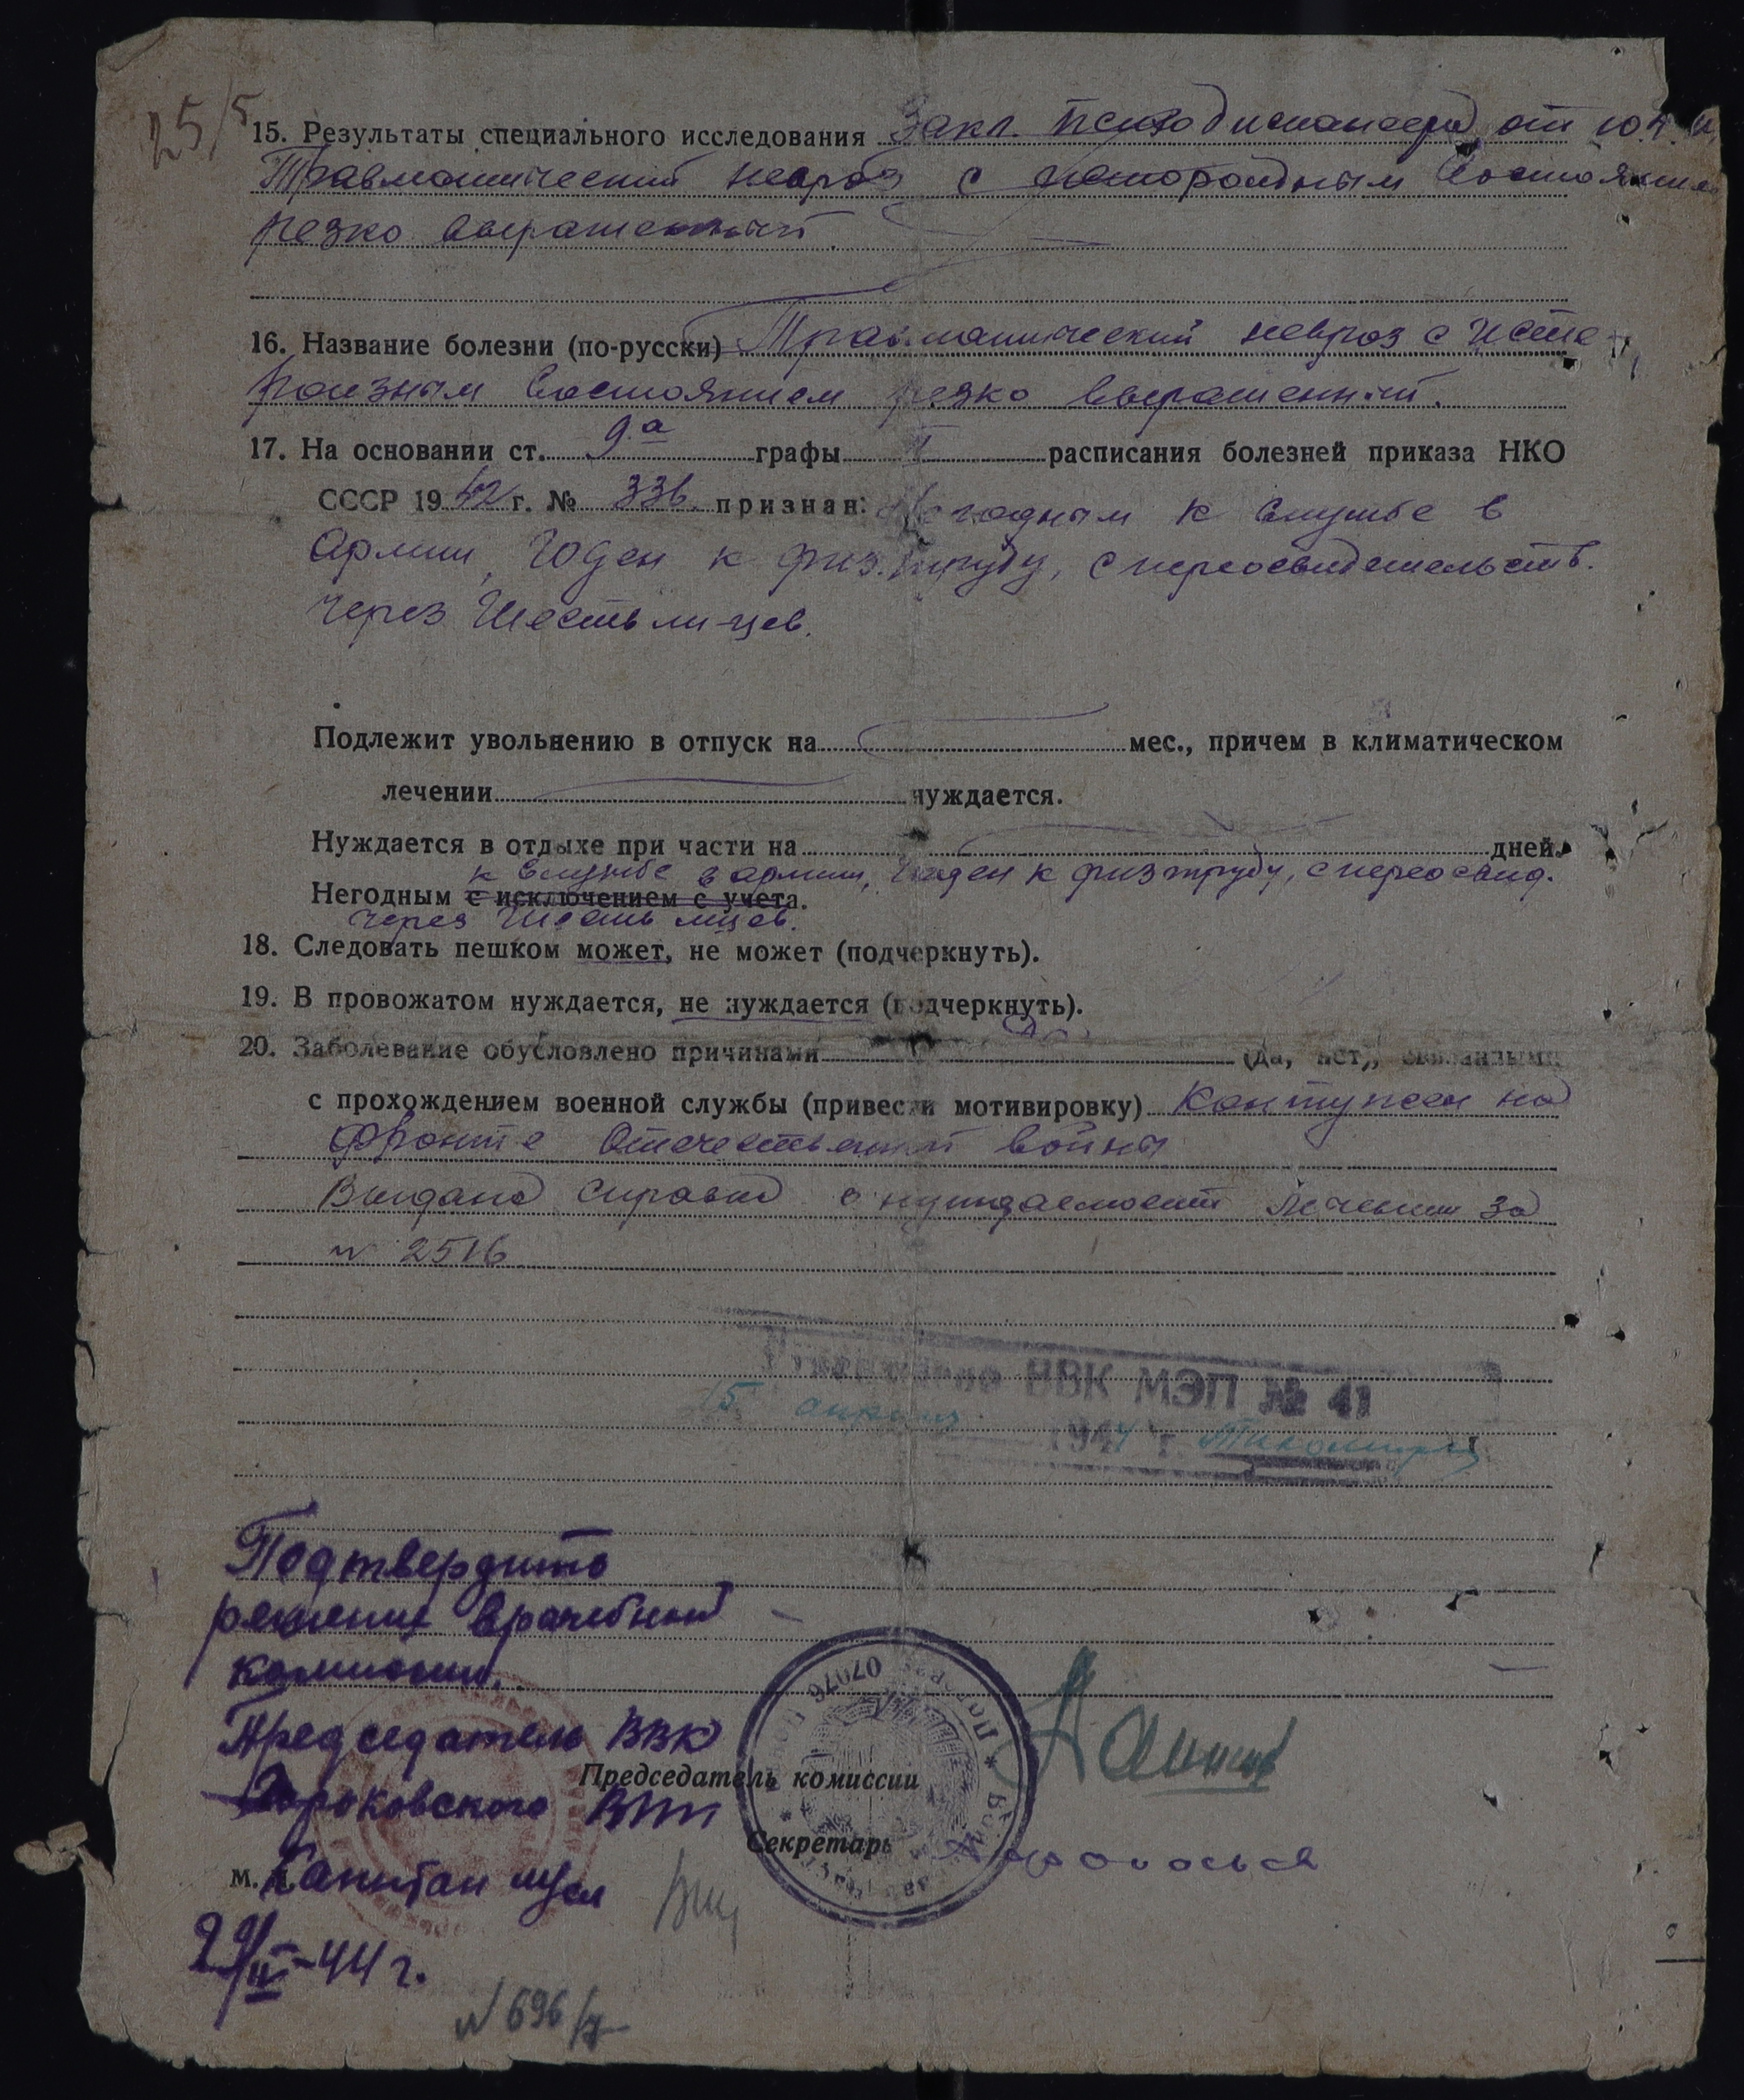 25/5
15. Результаты специального исследования Закл. психодиспансера от 10.4.
Травматический невроз с истороидным состояния
резко выраженный.
16. Название болезни (по-русски) Травматический невроз с исте-
роизным состоянием резко выраженный.
17. На основании ст. 9.а графы I расписания болезней приказа НКО
СССР 1942 г. № 336 признан: Негодным к службе в
армии, годен к физ.труду, с переосвидетельств.
через шесть м-цев.
Подлежит увольнению в отпуск на мес., причем в климатическом
лечении нуждается.
Нуждается в отдыхе при части на дней.
к службе в армии, годен к физтруду, с переосвид.
Негодным с исключением с учета.
через шесть м-цев.
18. Следовать пешком может, не может (подчеркнуть).
19. В провожатом нуждается, не нуждается (подчеркнуть).
20. Заболевание обусловлено причинами да (да, нет), связанными
с прохождением военной службы (привести мотивировку) Контужен на
фронте Отечественной войны
Выдана справка о нуждаемости лечении за
№ 2516
ВВК МЭП № 41
15 апреля 1944 г.
Подтвердить
решение врачебной
комиссии.
Председатель ВВК
Председатель комиссии
ВПП
Секретарь
М. Капитан м/сл
29/IV-44 г.
№ 696/7
07076